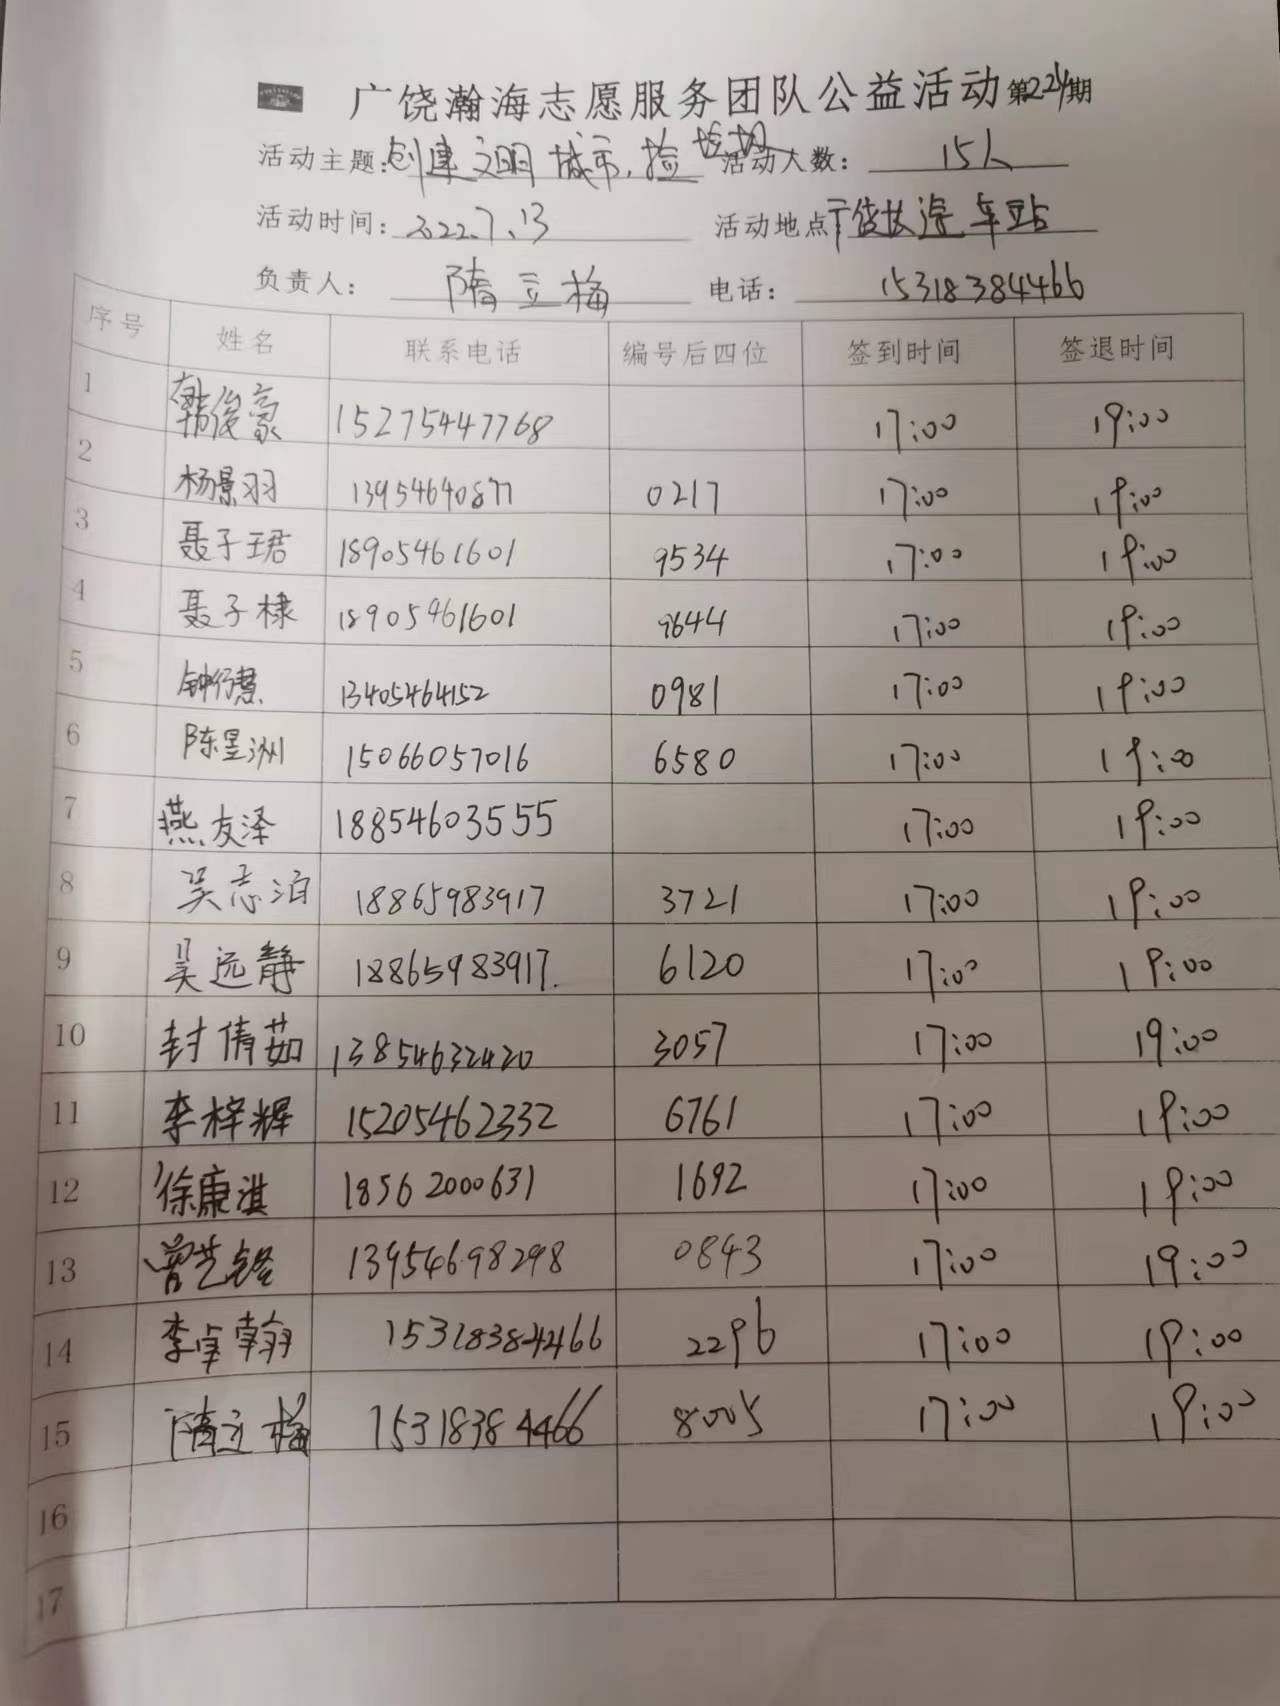 广饶瀚海志愿服务团队公益活动第224期
活动主题:创建文明城市,捡垃圾 活动人数: 15人
活动时间: 2022.7.13 活动地点 汽车站
负责人: 隋立梅 电话: 15318384466
序号 姓名 联系电话 编号后四位 签到时间 签退时间
1 韩俊豪 15275447768 17:00 19:00
2 杨景羽 13954640877 0217 17:00 19:00
3 聂子珺 18905461601 9534 17:00 19:00
4 聂子棣 18905461601 9644 17:00 19:00
5 钟行慧 13405464152 0981 17:00 19:00
6 陈昱洲 15066057016 6580 17:00 19:00
7 燕友泽 18854603555 17:00 19:00
8 吴志泊 18865983917 3721 17:00 19:00
9 吴远静 18865983917. 6120 17:00 19:00
10 封倩茹 13854632420 3057 17:00 19:00
11 李梓辉 15205462332 6761 17:00 19:00
12 徐康淇 18562000631 1692 17:00 19:00
13 曾艺铭 13954698298 0843 17:00 19:00
14 李卓翰 15318384466 2296 17:00 19:00
15 隋立梅 15318384466 8005 17:00 19:00
16
17